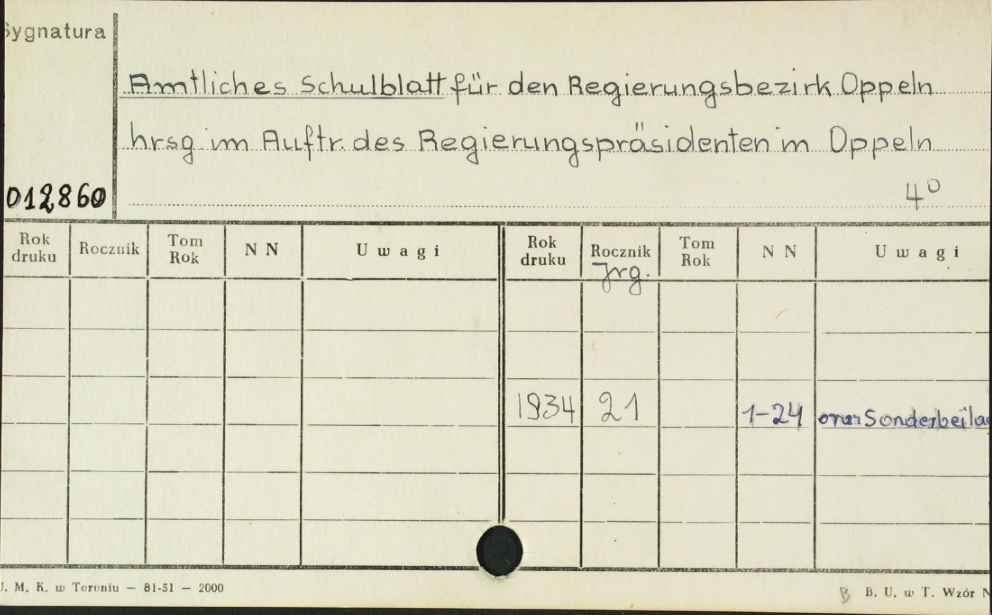 Sygnatura
Amtliches Schulblatt für den Regierungsbezirk Oppeln
hrsg im Auftr. des Regierungspräsidenten in Oppeln
012860 4°
Rok druku Rocznik Tom Rok N N U w a g i Rok druku Rocznik Tom Rok N N U w a g i
Jrg.
1934 21 1-24 oraz Sonderbeilag
U. M. K. w Toruniu — 81-51 — 2000 B B. U. w T. Wzór N